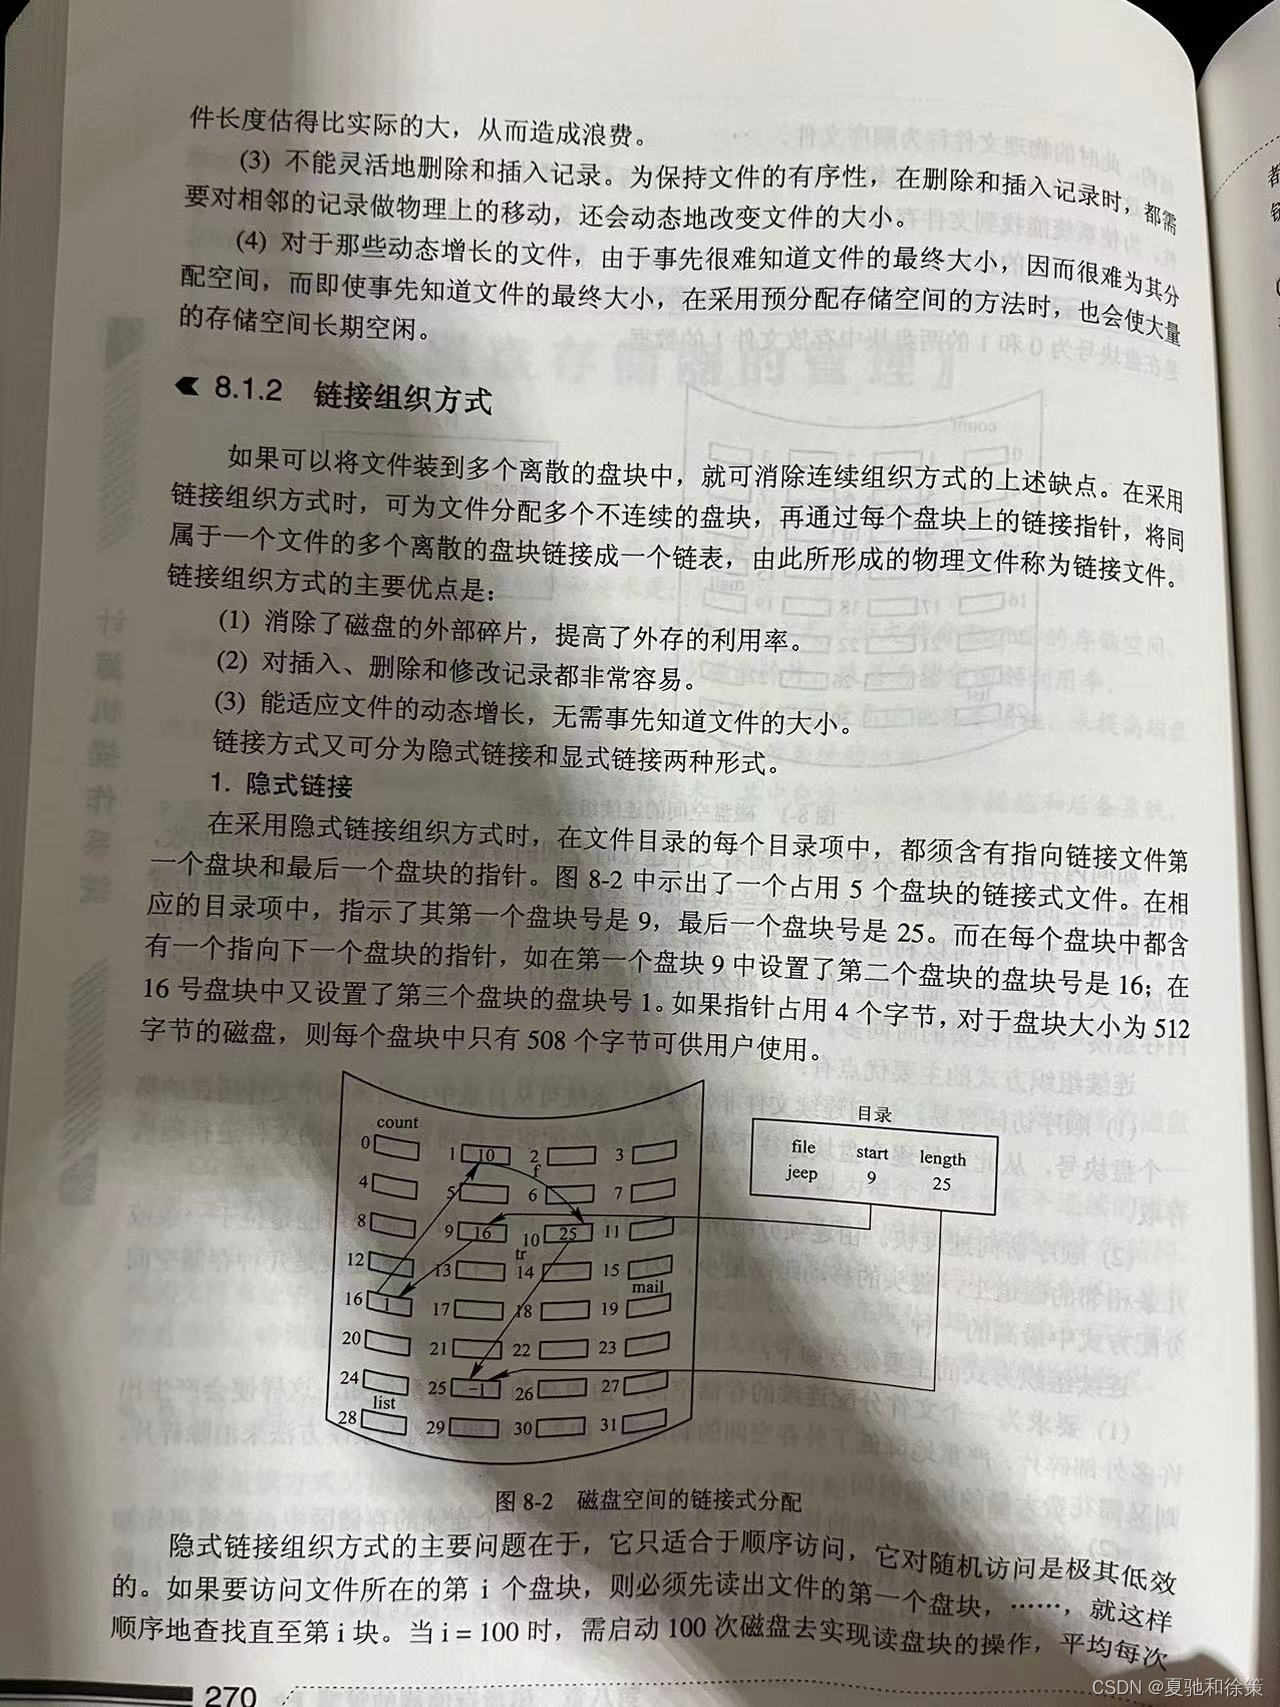 件长度估得比实际的大，从而造成浪费。
(3) 不能灵活地删除和插入记录。为保持文件的有序性，在删除和插入记录时，都需
要对相邻的记录做物理上的移动，还会动态地改变文件的大小。
(4) 对于那些动态增长的文件，由于事先很难知道文件的最终大小，因而很难为其分
配空间，而即使事先知道文件的最终大小，在采用预分配存储空间的方法时，也会使大量
的存储空间长期空闲。
8.1.2 链接组织方式
如果可以将文件装到多个离散的盘块中，就可消除连续组织方式的上述缺点。在采用
链接组织方式时，可为文件分配多个不连续的盘块，再通过每个盘块上的链接指针，将同
属于一个文件的多个离散的盘块链接成一个链表，由此所形成的物理文件称为链接文件。
链接组织方式的主要优点是：
(1) 消除了磁盘的外部碎片，提高了外存的利用率。
(2) 对插入、删除和修改记录都非常容易。
(3) 能适应文件的动态增长，无需事先知道文件的大小。
链接方式又可分为隐式链接和显式链接两种形式。
1. 隐式链接
在采用隐式链接组织方式时，在文件目录的每个目录项中，都须含有指向链接文件第
一个盘块和最后一个盘块的指针。图 8-2 中示出了一个占用 5 个盘块的链接式文件。在相
应的目录项中，指示了其第一个盘块号是 9，最后一个盘块号是 25。而在每个盘块中都含
有一个指向下一个盘块的指针，如在第一个盘块 9 中设置了第二个盘块的盘块号是 16；在
16 号盘块中又设置了第三个盘块的盘块号 1。如果指针占用 4 个字节，对于盘块大小为 512
字节的磁盘，则每个盘块中只有 508 个字节可供用户使用。
目录
count
file start length
jeep 9 25
0 1 10 2 3
f
4 5 6 7
8 9 16 10 25 11
tr
12 13 14 15
mail
16 1 17 18 19
20 21 22 23
24 25 -1 26 27
list
28 29 30 31
图 8-2 磁盘空间的链接式分配
隐式链接组织方式的主要问题在于，它只适合于顺序访问，它对随机访问是极其低效
的。如果要访问文件所在的第 i 个盘块，则必须先读出文件的第一个盘块，……，就这样
顺序地查找直至第 i 块。当 i = 100 时，需启动 100 次磁盘去实现读盘块的操作，平均每次
270
计算机操作系统
CSDN @夏驰和徐策